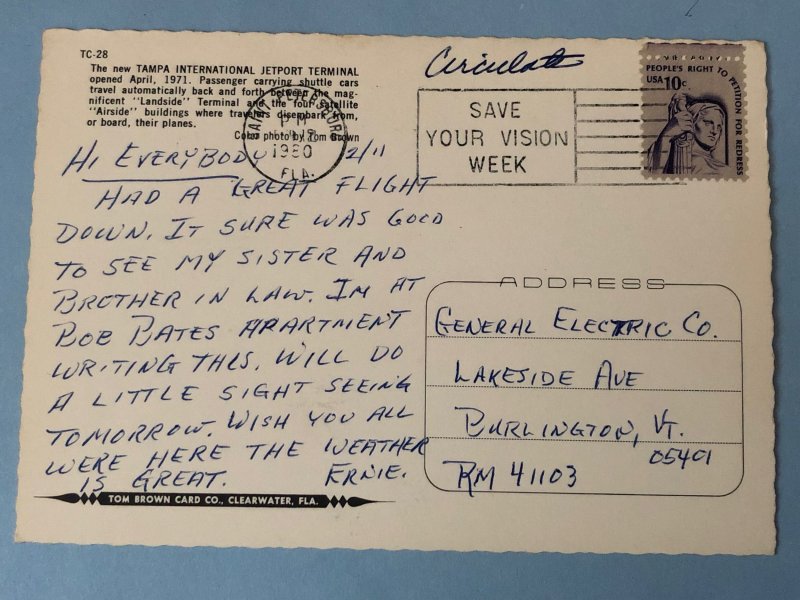 TC-28
The new TAMPA INTERNATIONAL JETPORT TERMINAL
opened April, 1971. Passenger carrying shuttle cars
travel automatically back and forth between the mag-
nificent "Landside" Terminal and the four satellite
"Airside" buildings where travelers disembark from,
or board, their planes.
Color photo by Tom Brown
Circulate
SAVE
YOUR VISION
WEEK
PM
1980
FLA.
PEOPLE'S RIGHT TO PETITION FOR REDRESS
USA 10c
HI EVERYBODY 2/11
HAD A GREAT FLIGHT
DOWN. IT SURE WAS GOOD
TO SEE MY SISTER AND
BROTHER IN LAW. IM AT
BOB BATES APARTMENT
WRITING THIS. WILL DO
A LITTLE SIGHT SEEING
TOMORROW. WISH YOU ALL
WERE HERE THE WEATHER
IS GREAT. ERNIE.
ADDRESS
GENERAL ELECTRIC CO.
LAKESIDE AVE
BURLINGTON, VT.
05401
RM 41103
TOM BROWN CARD CO., CLEARWATER, FLA.